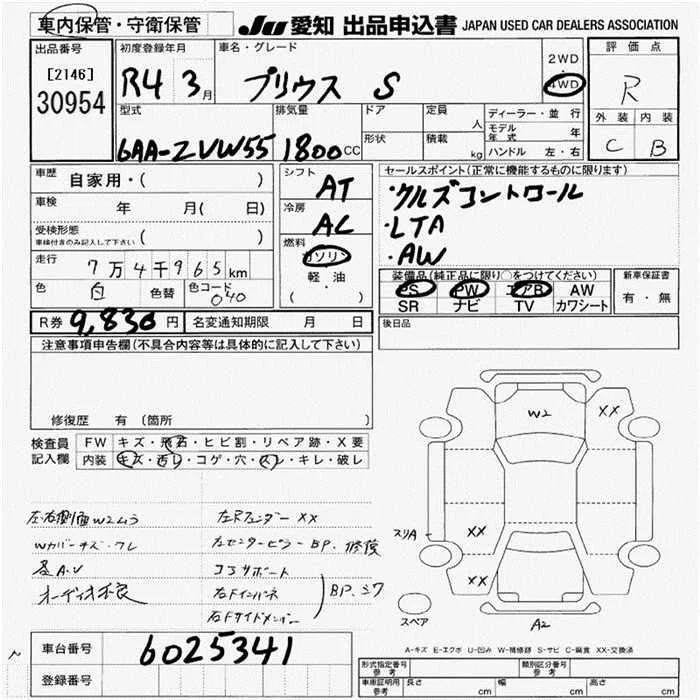 車内保管・守衛保管
JU 愛知 出品申込書 JAPAN USED CAR DEALERS ASSOCIATION
出品番号
[2146]
30954
初度登録年月
R4 3月
車名・グレード
プリウス S
2WD
・
4WD
評価点
R
外装 内装
C B
型式
6AA-ZVW55
排気量
1800CC
ドア
形状
定員
人
積載
kg
ディーラー・並行
モデル年式 年
ハンドル 左・右
車歴 自家用・( )
車検 年 月( 日)
受検形態
車検付きのみ記入して下さい ( )
走行 7万4千965km
色 白 色替 色コード 040
シフト
AT
冷房
AC
燃料
ガソリン
軽・油
( ・ )
セールスポイント(正常に機能するものに限ります)
・クルズコントロール
・LTA
・AW
装備品(純正品に限り○をつけてください)
PS PW エアB AW
SR ナビ TV カワシート
新車保証書
有・無
R券 9,830円
名変通知期限 月 日
後日品
注意事項申告欄(不具合内容等は具体的に記入して下さい)
修復歴 有(箇所
検査員記入欄
FW キズ・飛石・ヒビ割・リペア跡・X要
内装 キズ・汚レ・コゲ・穴・スレ・キレ・破レ
左右側面W2ムラ
Wカバーキズ・ワレ
各A.U
オーディオ不良
左Rフェンダー XX
左センターピラー BP、修復
コアサポート
右Fインパネ
右Fサイドメンバー
BP、シワ
W2
XX
スリA
XX
XX
A2
スペア
A-キズ E-エクボ U-凹み W-補修跡 S-サビ C-腐食 XX-交換済
車台番号 6025341
登録番号
型式指定番号 参考
類別区分番号 参考
車庫証明用 参考 長さ cm 幅 cm 高さ cm